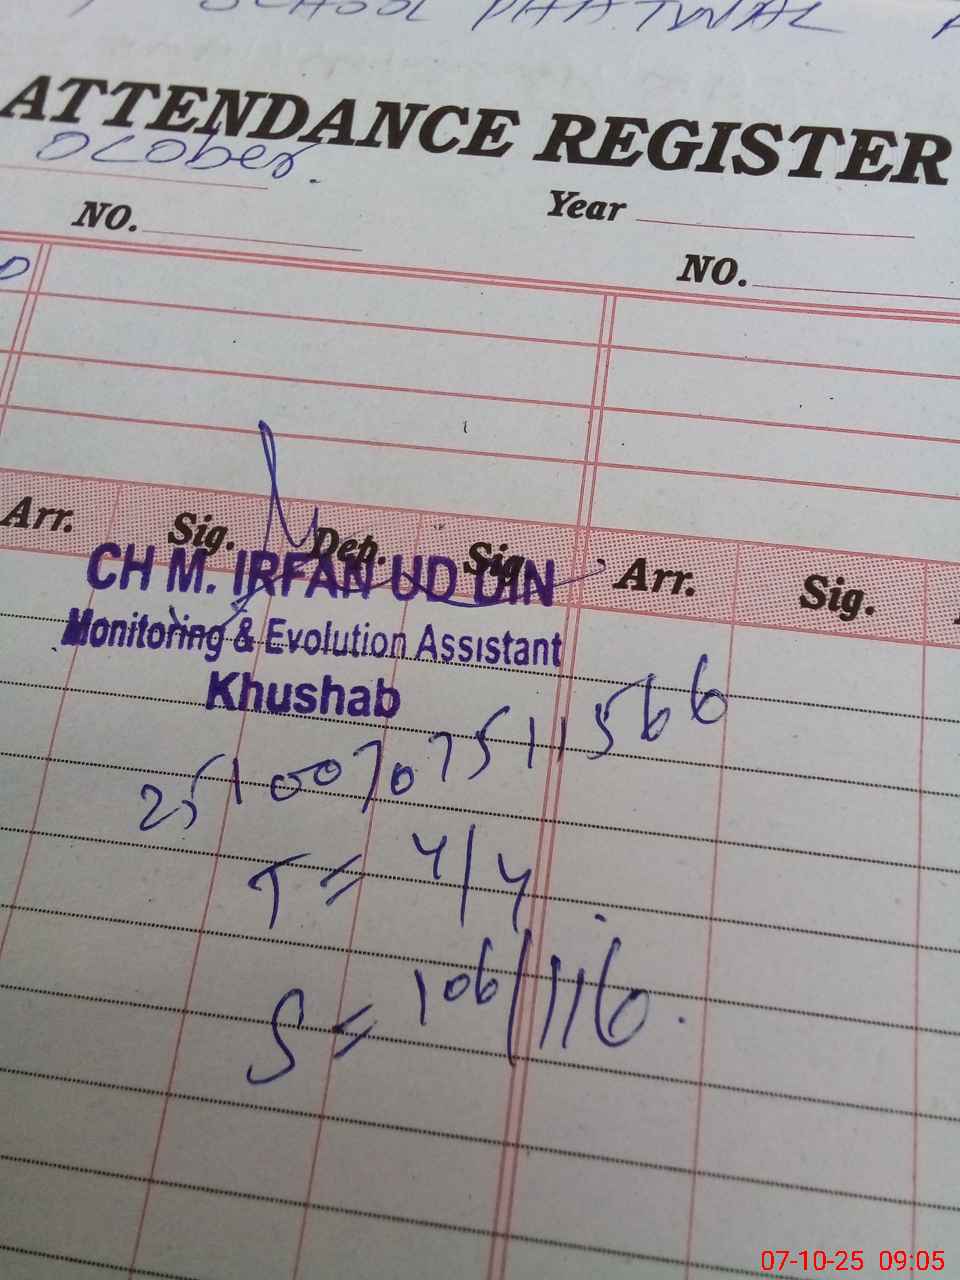 SCHOOL PHATWAL
ATTENDANCE REGISTER
Ocober.
Year
NO.
NO.
Arr. Sig. Dep. Sig. Arr. Sig.
CH M. IRFAN UD DIN
Monitoring & Evolution Assistant
Khushab
2510070751 1566
T = 4/4
S = 106/116.
07-10-25 09:05